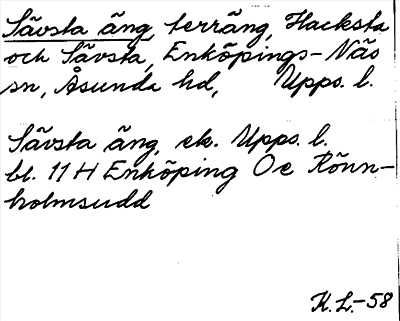 Sävsta äng, terräng, Hacksta
och Sävsta, Enköpings-Näs
sn, Åsunda hd, Upps. l.
Sävsta äng, ek. Upps. l.
bl. 11 H Enköping Oe Rönn-
holmsudd
K.L.-58